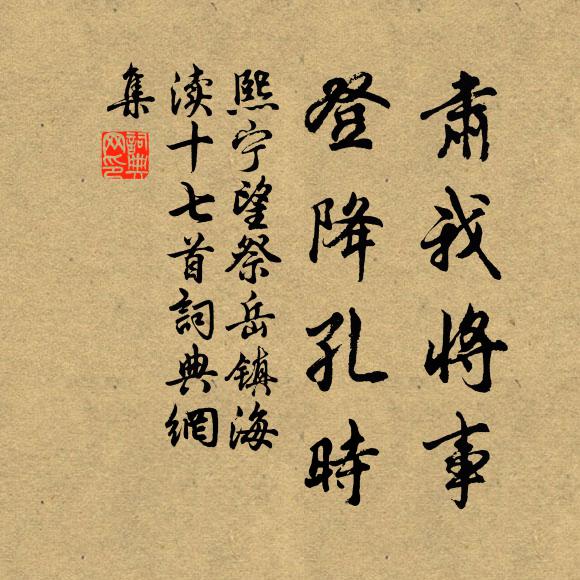 肃我将事
登降孔時
熙宁望祭岳镇海
渎十七首詞典網
集
詞典
网印